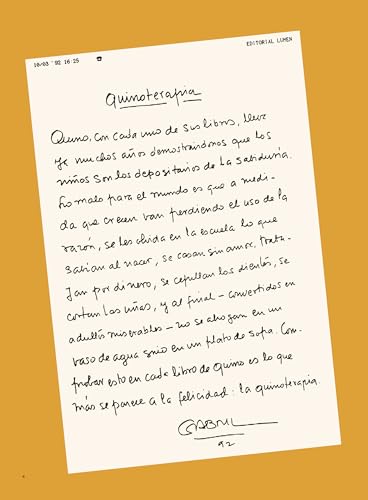 10/03 '92 16:25 ☎ EDITORIAL LUMEN
Quinoterapia
Quino, con cada uno de sus libros, lleva
ya muchos años demostrándonos que los
niños son los depositarios de la sabiduría.
Lo malo para el mundo es que a medi-
da que crecen van perdiendo el uso de la
razón, se les olvida en la escuela lo que
sabían al nacer, se casan sin amor, traba-
jan por dinero, se cepillan los dientes, se
cortan las uñas, y al final – convertidos en
adultos miserables – no se ahogan en un
vaso de agua sino en un plato de sopa. Com-
probar esto en cada libro de Quino es lo que
más se parece a la felicidad: la quinoterapia.
GABRIEL
92